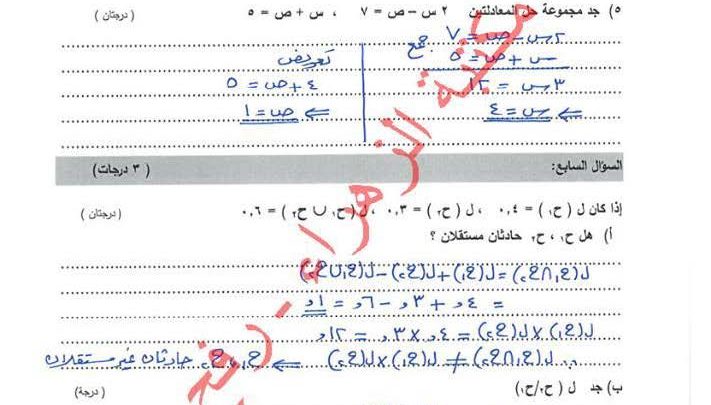 ٥) جد مجموعة حل المعادلتين ٢ س – ص = ٧ ، س + ص = ٥ ( درجتان )
٢س – ص = ٧
جمع
س + ص = ٥
٣س = ١٢
⇐ س = ٤
تعويض
٤ + ص = ٥
⇐ ص = ١
السؤال السابع: ( ٣ درجات)
إذا كان ل ( ح١ ) = ٠,٤ ، ل ( ح٢ ) = ٠,٣ ، ل ( ح١ ∪ ح٢ ) = ٠,٦ ( درجتان )
أ) هل ح١ ، ح٢ حادثان مستقلان ؟
ل(ح١∩ح٢) = ل(ح١) + ل(ح٢) – ل(ح١∪ح٢)
= ٤و + ٣و – ٦و = ١و
ل(ح١) × ل(ح٢) = ٤و × ٣و = ١٢و
∴ ل(ح١∩ح٢) ≠ ل(ح١) × ل(ح٢) ⇐ ح١ ، ح٢ حادثان غير مستقلان
ب) جد ل ( ح٢/ح١) ( درجة)
مكتبة الزهراء - رفح